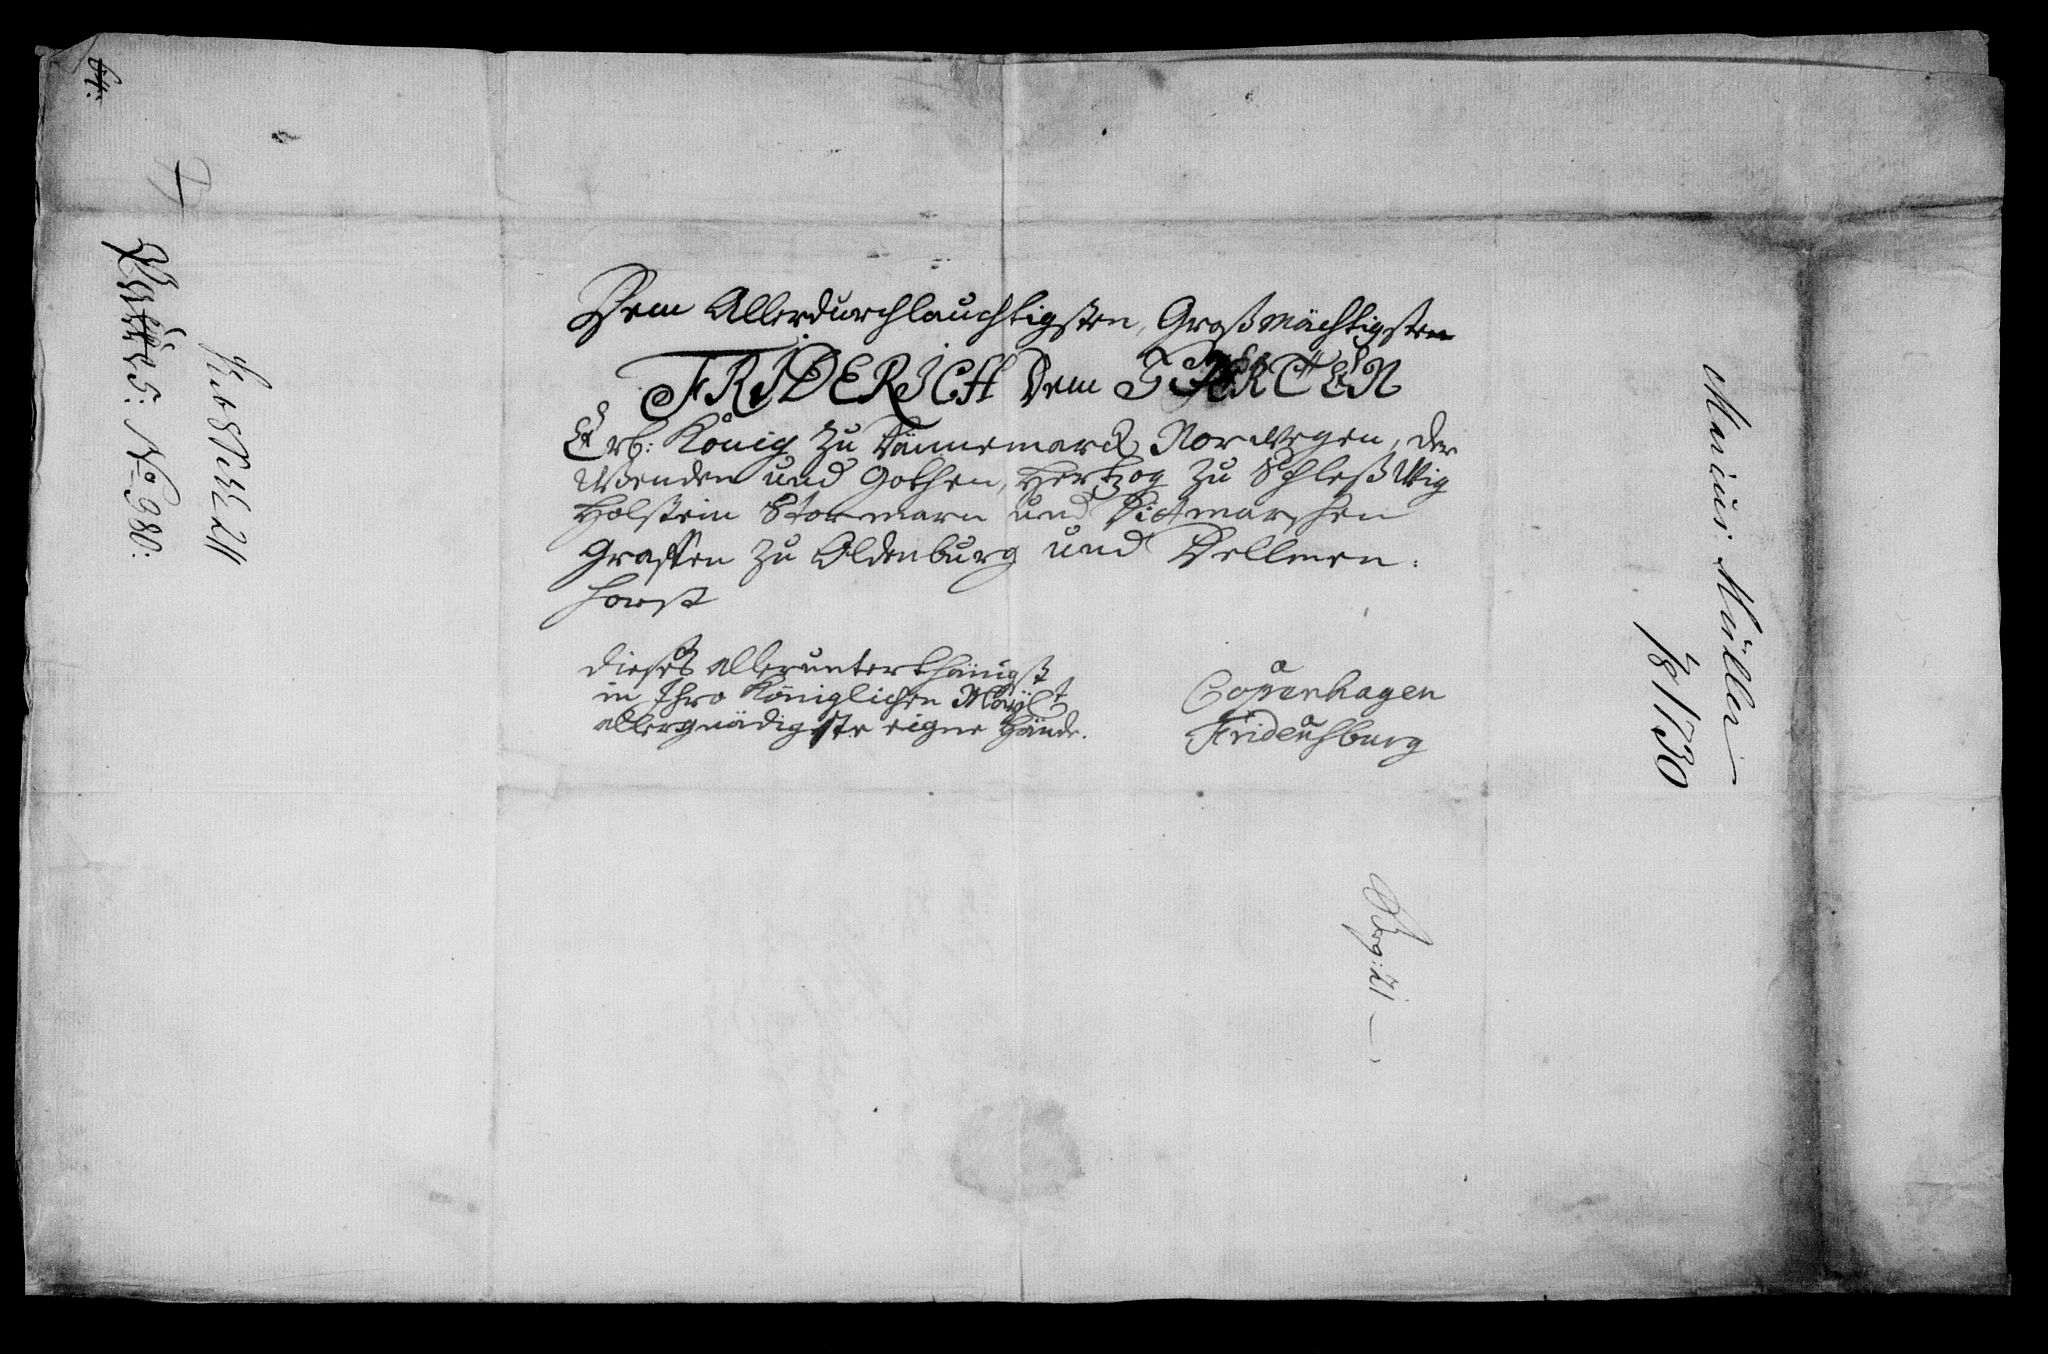 64:
No 980:
Dem Allerdurchlauchtigsten, Großmächtigsten
FRIDERICH Dem VIERTEN
Erb: König zu Dännemarck Norwegen, der
Wenden und Gothen, Hertzog zu Schleßwig
Holstein Stormarn und Ditmarschen
Graffen zu Oldenburg und Dellmen:
horst
dieses allerunterthänigst
in Ihro Königlichen Mayt
allergnädigste eigne Hände.
Copenhagen
Müller
1730